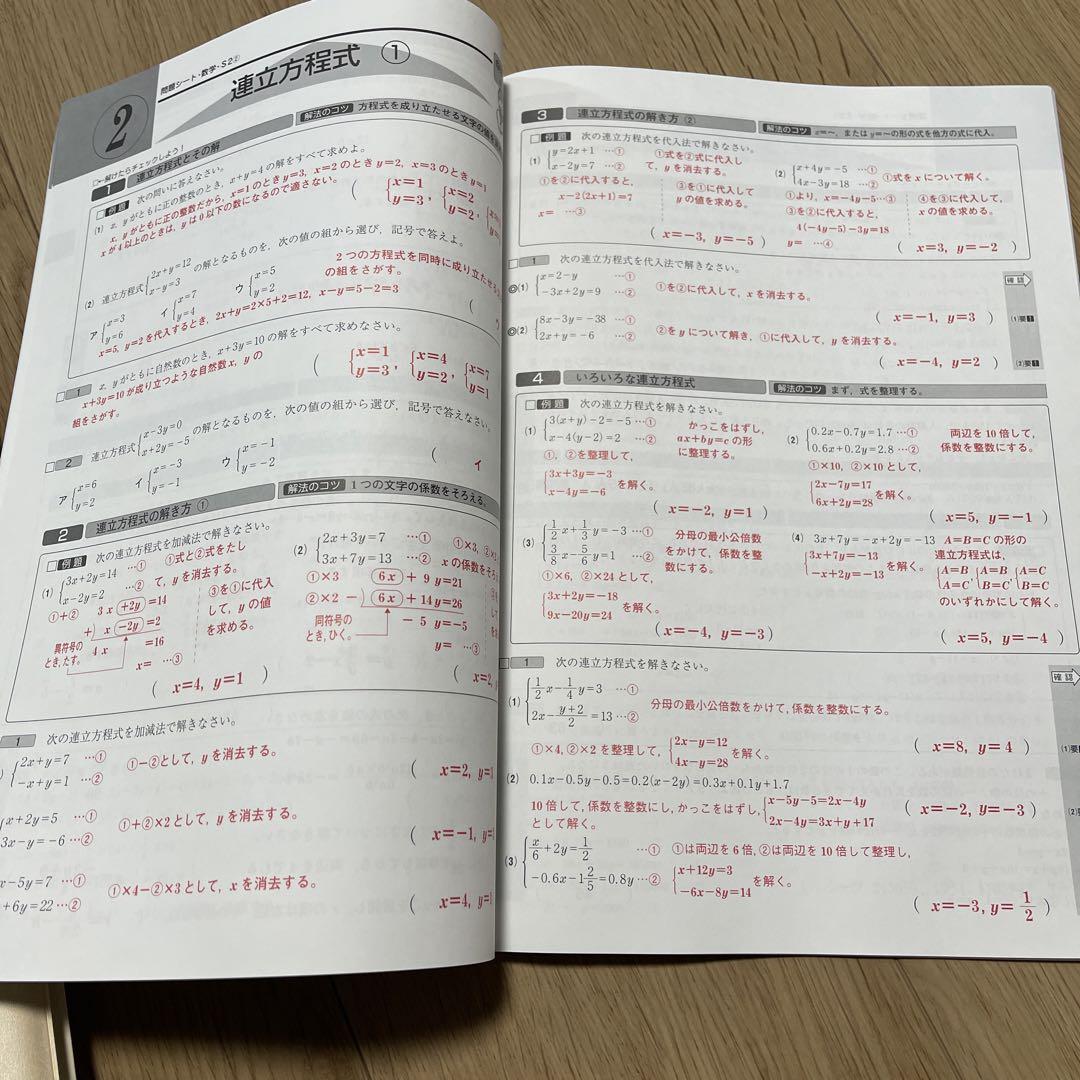 問題シート・数学・S2②
2
連立方程式 ①
□←解けたらチェックしよう!
1 連立方程式とその解
解法のコツ 方程式を成り立たせる文字の値を
□例題 次の問いに答えなさい。
(1) x, yがともに正の整数のとき, x+y=4の解をすべて求めよ。
x, yがともに正の整数だから, x=1のときy=3, x=2のときy=2, x=3のときy=1
xが4以上のときは, yは0以下の数になるので適さない。
( {x=1 y=3, {x=2 y=2,
(2) 連立方程式{2x+y=12 x-y=3 の解となるものを, 次の値の組から選び, 記号で答えよ。
ア{x=3 y=6 イ{x=7 y=4 ウ{x=5 y=2
2つの方程式を同時に成り立たせる
の組をさがす。
x=5, y=2を代入するとき, 2x+y=2×5+2=12, x-y=5-2=3
( ウ
□1 x, yがともに自然数のとき, x+3y=10の解をすべて求めなさい。
x+3y=10が成り立つような自然数x, yの
組をさがす。
( {x=1 y=3, {x=4 y=2, {x=7 y=1
□2 連立方程式{x-3y=0 x+2y=-5 の解となるものを, 次の値の組から選び, 記号で答えなさい。
ア{x=6 y=2 イ{x=-3 y=-1 ウ{x=-1 y=-2
( イ
2 連立方程式の解き方 ①
解法のコツ 1つの文字の係数をそろえる。
□例題 次の連立方程式を加減法で解きなさい。
(1) {3x+2y=14 …① x-2y=2 …②
①式と②式をたし
て, yを消去する。
①+② 3x+2y=14
+) x-2y=2
4x =16
x= …③
異符号の
とき, たす。
③を①に代入
して, yの値
を求める。
( x=4, y=1 )
(2) {2x+3y=7 …① 3x+7y=13 …②
①×3, ②×
xの係数をそろ
①×3 6x+9y=21
②×2 -) 6x+14y=26
-5y=-5
y= …③
同符号の
とき, ひく。
( x=2,
1 次の連立方程式を加減法で解きなさい。
{2x+y=7 …① -x+y=1 …②
①-②として, yを消去する。
( x=2, y=
x+2y=5 …①
3x-y=-6 …②
①+②×2として, yを消去する。
( x=-1, y=
x-5y=7 …①
+6y=22 …②
①×4-②×3として, xを消去する。
( x=4, y=
3 連立方程式の解き方 ②
解法のコツ x=～, またはy=～の形の式を他方の式に代入。
□例題 次の連立方程式を代入法で解きなさい。
(1) {y=2x+1 …① x-2y=7 …②
①式を②式に代入し
て, yを消去する。
①を②に代入すると,
x-2(2x+1)=7
x= …③
③を①に代入して
yの値を求める。
( x=-3, y=-5 )
(2) {x+4y=-5 …① 4x-3y=18 …②
①式をxについて解く。
①より, x=-4y-5…③
③を②に代入すると,
4(-4y-5)-3y=18
y= …④
④を③に代入して,
xの値を求める。
( x=3, y=-2 )
□1 次の連立方程式を代入法で解きなさい。
確認
◎(1) {x=2-y …① -3x+2y=9 …②
①を②に代入して, xを消去する。
( x=-1, y=3 )
(1)要1
◎(2) {8x-3y=-38 …① 2x+y=-6 …②
②をyについて解き, ①に代入して, yを消去する。
( x=-4, y=2 )
(2)要1
4 いろいろな連立方程式
解法のコツ まず, 式を整理する。
□例題 次の連立方程式を解きなさい。
(1) {3(x+y)-2=-5 …① x-4(y-2)=2 …②
かっこをはずし,
ax+by=cの形
に整理する。
①, ②を整理して,
{3x+3y=-3 x-4y=-6 を解く。
( x=-2, y=1 )
(2) {0.2x-0.7y=1.7 …① 0.6x+0.2y=2.8 …②
両辺を10倍して,
係数を整数にする。
①×10, ②×10として,
{2x-7y=17 6x+2y=28 を解く。
( x=5, y=-1 )
(3) {1/2x+1/3y=-3 …① 3/8x-5/6y=1 …②
分母の最小公倍数
をかけて, 係数を整
数にする。
①×6, ②×24として,
{3x+2y=-18 9x-20y=24 を解く。
( x=-4, y=-3 )
(4) 3x+7y=-x+2y=-13
{3x+7y=-13 -x+2y=-13 を解く。
A=B=Cの形の
連立方程式は,
{A=B A=C, {A=B B=C, {A=C B=C
のいずれかにして解く。
( x=5, y=-4 )
□1 次の連立方程式を解きなさい。
確認
(1) {1/2x-1/4y=3 …① 2x-(y+2)/2=13 …②
分母の最小公倍数をかけて, 係数を整数にする。
①×4, ②×2を整理して, {2x-y=12 4x-y=28 を解く。
( x=8, y=4 )
(1)要
(2) 0.1x-0.5y-0.5=0.2(x-2y)=0.3x+0.1y+1.7
10倍して, 係数を整数にし, かっこをはずし, {x-5y-5=2x-4y 2x-4y=3x+y+17
として解く。
( x=-2, y=-3 )
(2)要
(3) {x/6+2y=1/2 …① -0.6x-1 2/5=0.8y …②
①は両辺を6倍, ②は両辺を10倍して整理し,
{x+12y=3 -6x-8y=14 を解く。
( x=-3, y=1/2 )